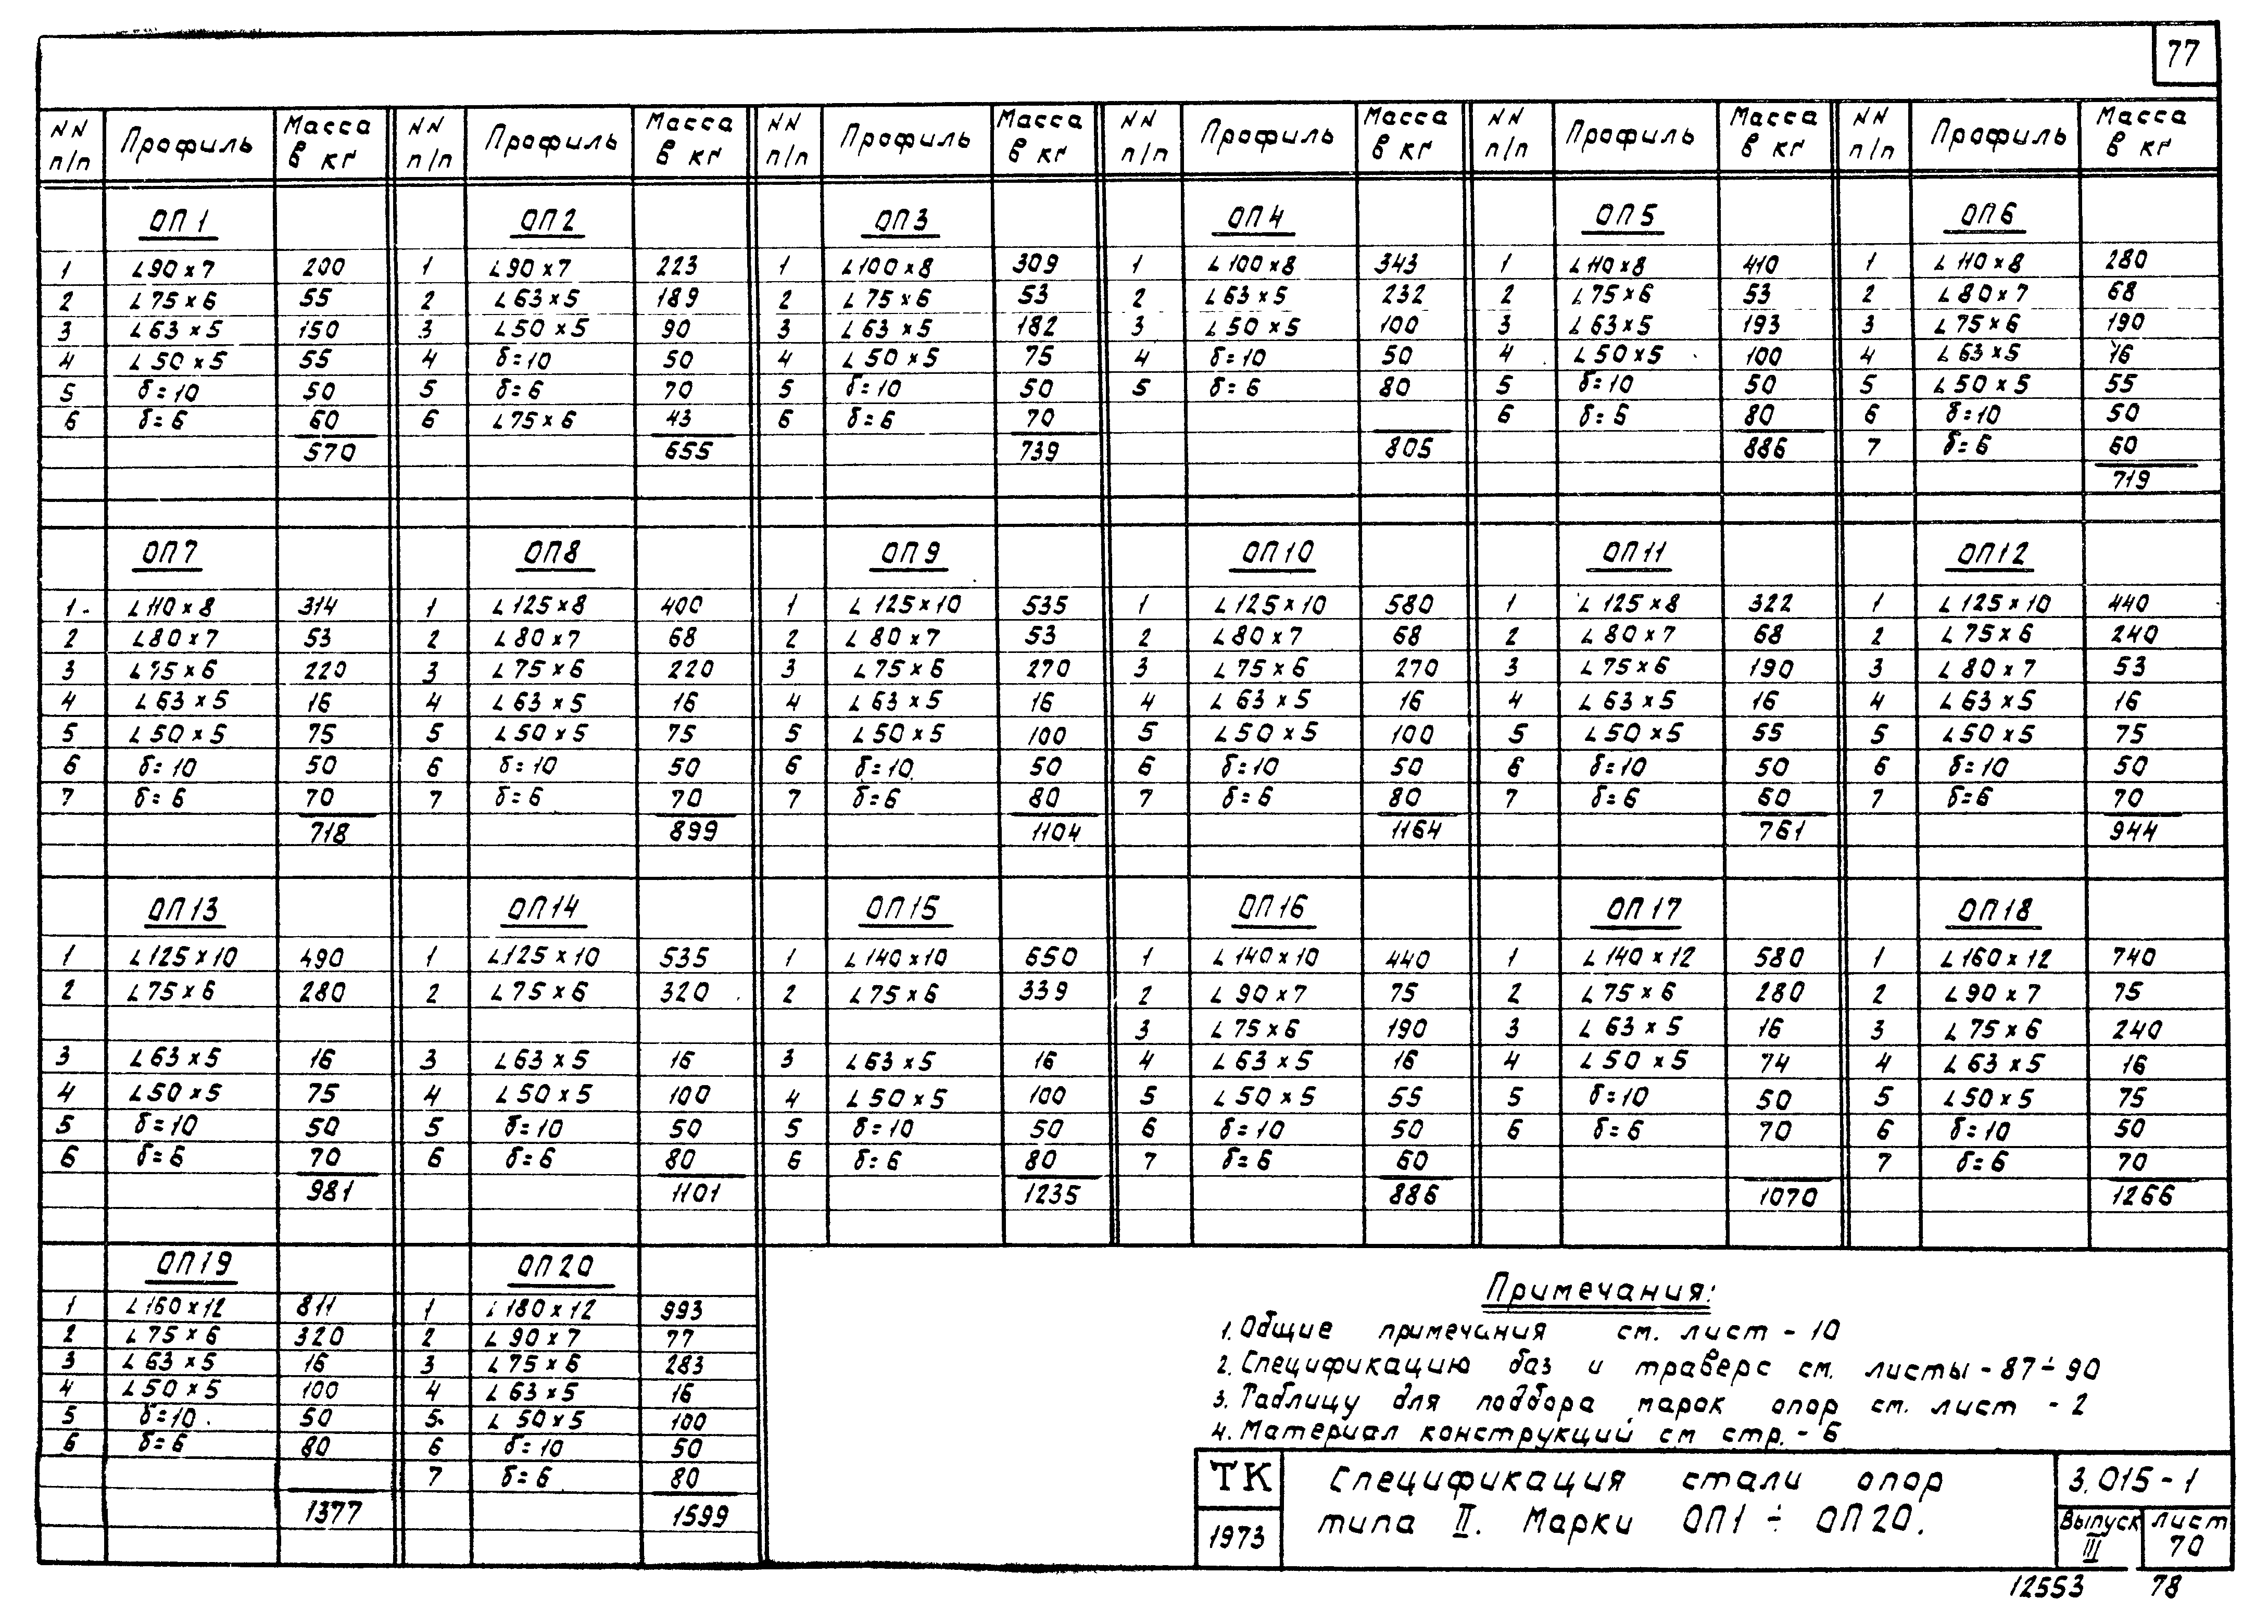 77
NN п/п Профиль Масса в кг NN п/п Профиль Масса в кг NN п/п Профиль Масса в кг NN п/п Профиль Масса в кг NN п/п Профиль Масса в кг NN п/п Профиль Масса в кг
ОП1 ОП2 ОП3 ОП4 ОП5 ОП6
1 L90×7 200 1 L90×7 223 1 L100×8 309 1 L100×8 343 1 L110×8 410 1 L110×8 280
2 L75×6 55 2 L63×5 189 2 L75×6 53 2 L63×5 232 2 L75×6 53 2 L80×7 68
3 L63×5 150 3 L50×5 90 3 L63×5 182 3 L50×5 100 3 L63×5 193 3 L75×6 190
4 L50×5 55 4 δ=10 50 4 L50×5 75 4 δ=10 50 4 L50×5 100 4 L63×5 16
5 δ=10 50 5 δ=6 70 5 δ=10 50 5 δ=6 80 5 δ=10 50 5 L50×5 55
6 δ=6 60 6 L75×6 43 6 δ=6 70 6 δ=6 80 6 δ=10 50
570 655 739 805 886 7 δ=6 60
719
ОП7 ОП8 ОП9 ОП10 ОП11 ОП12
1. L110×8 314 1 L125×8 400 1 L125×10 535 1 L125×10 580 1 L125×8 322 1 L125×10 440
2 L80×7 53 2 L80×7 68 2 L80×7 53 2 L80×7 68 2 L80×7 68 2 L75×6 240
3 L75×6 220 3 L75×6 220 3 L75×6 270 3 L75×6 270 3 L75×6 190 3 L80×7 53
4 L63×5 16 4 L63×5 16 4 L63×5 16 4 L63×5 16 4 L63×5 16 4 L63×5 16
5 L50×5 75 5 L50×5 75 5 L50×5 100 5 L50×5 100 5 L50×5 55 5 L50×5 75
6 δ=10 50 6 δ=10 50 6 δ=10 50 6 δ=10 50 6 δ=10 50 6 δ=10 50
7 δ=6 70 7 δ=6 70 7 δ=6 80 7 δ=6 80 7 δ=6 60 7 δ=6 70
718 899 1104 1164 761 944
ОП13 ОП14 ОП15 ОП16 ОП17 ОП18
1 L125×10 490 1 L125×10 535 1 L140×10 650 1 L140×10 440 1 L140×12 580 1 L160×12 740
2 L75×6 280 2 L75×6 320 2 L75×6 339 2 L90×7 75 2 L75×6 280 2 L90×7 75
3 L75×6 190 3 L63×5 16 3 L75×6 240
3 L63×5 16 3 L63×5 16 3 L63×5 16 4 L63×5 16 4 L50×5 74 4 L63×5 16
4 L50×5 75 4 L50×5 100 4 L50×5 100 5 L50×5 55 5 δ=10 50 5 L50×5 75
5 δ=10 50 5 δ=10 50 5 δ=10 50 6 δ=10 50 6 δ=6 70 6 δ=10 50
6 δ=6 70 6 δ=6 80 6 δ=6 80 7 δ=6 60 7 δ=6 70
981 1101 1235 886 1070 1266
ОП19 ОП20
1 L160×12 811 1 L180×12 993
2 L75×6 320 2 L90×7 77
3 L63×5 16 3 L75×6 283
4 L50×5 100 4 L63×5 16
5 δ=10 50 5. L50×5 100
6 δ=6 80 6 δ=10 50
7 δ=6 80
1377 1599
Примечания:
1. Общие примечания см. лист - 10
2. Спецификацию баз и траверс см. листы - 87÷90
3. Таблицу для подбора марок опор см. лист - 2
4. Материал конструкций см стр. - 6
ТК
1973
Спецификация стали опор
типа II. Марки ОП1 ÷ ОП20.
3.015-1
Выпуск III
лист 70
12553 78